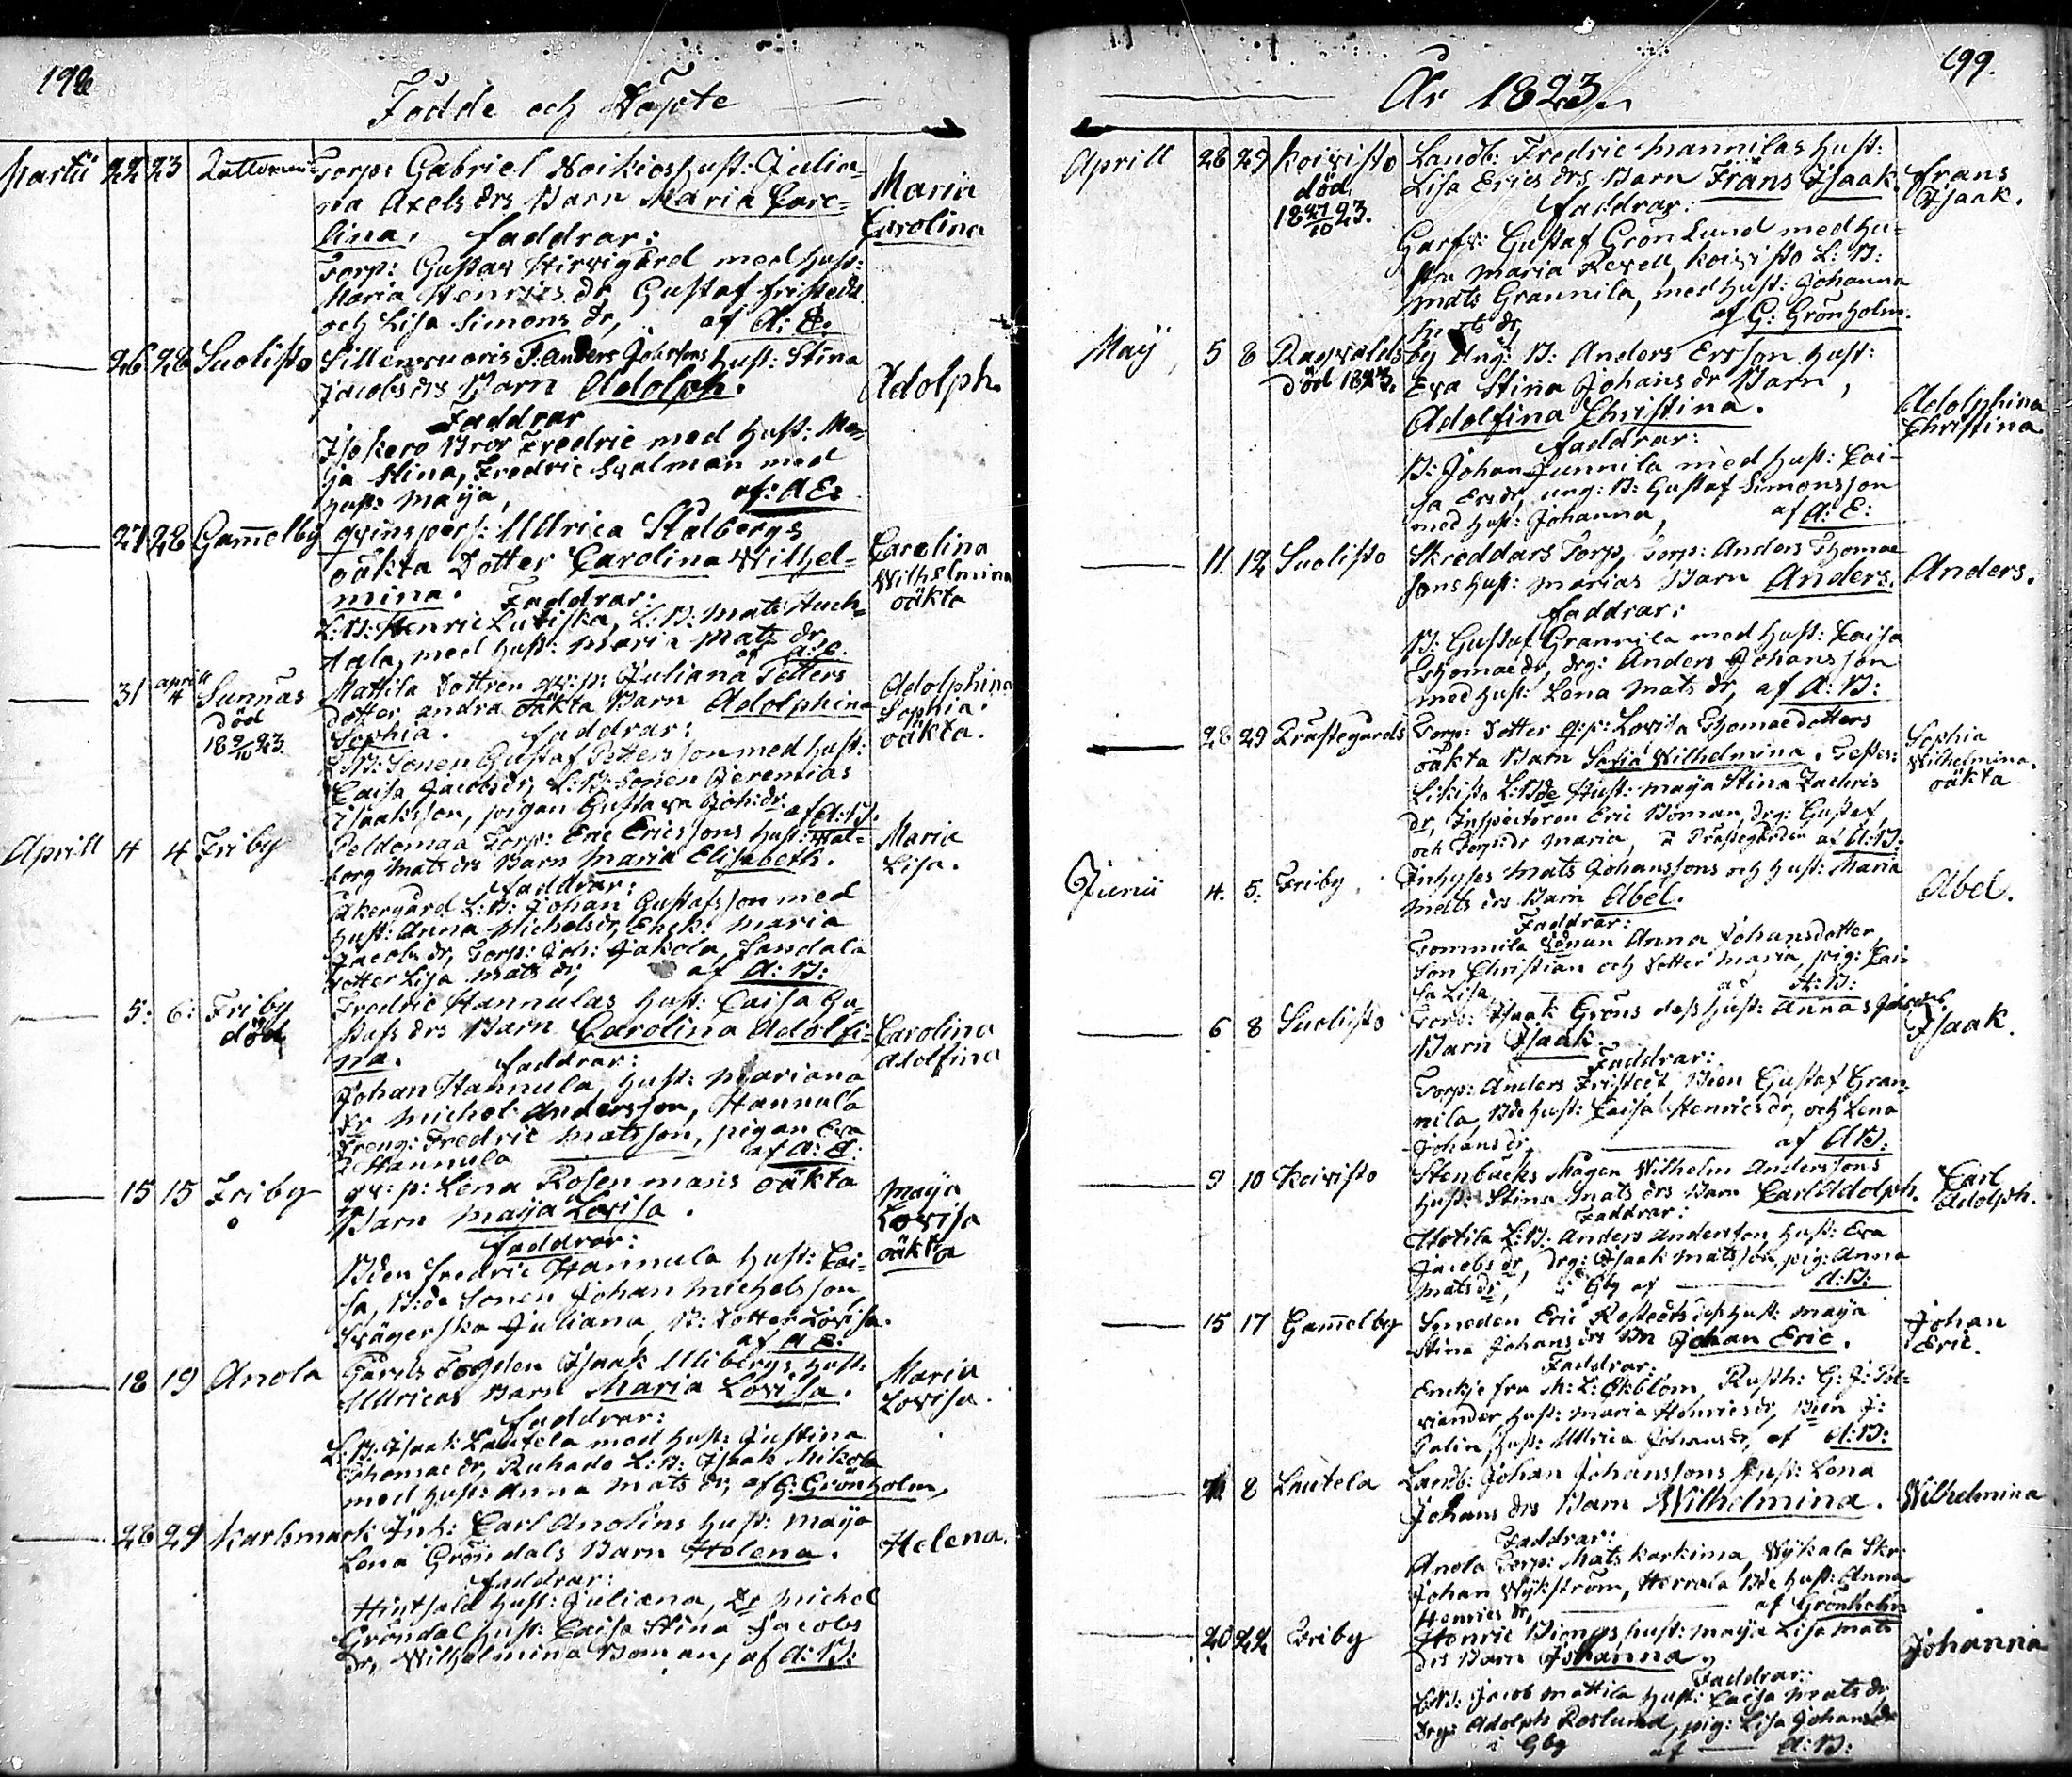 198
Födde och Döpte
Martii 22 23 Torp: Gabriel Noikios hust: Julia-
na Axels drs Barn Maria Caro-
lina. faddrar:
Maria
Carolina
Torp: Gustav Hirvigård med hust:
Maria Henrics dr, Gustaf fristedt
och Lisa Simons dr, af A: E.
26 28 Suolisto Sillenvuoris T: Anders Johssons hust: Stina
Jacobs drs Barn Adolph.
Adolph.
Faddrar
Isokero Bror Fredric med hust: Ma-
ja Stina, Fredric Svalman med
hust: Maija, af: A E:
27 28 Gam̄elby qvinspers: Ulrica Stålbergs
oäkta Dotter Carolina Wilhel-
mina. Faddrar:
Carolina
Wilhelmina
oäkta
L: B: Henric Lutiska, L: B: Mats Huch-
tala, med hust: Maria Mats dr,
af A: E.
31 april 4 Sunnäs Mattila Dottren qv: p: Juliana Petters
död
18 9/10 23.
dotter andra oäkta Barn Adolphina
Sophia. faddrar:
Adolphina
Sophia.
oäkta.
L: B: Sonen Gustaf Pettersson med hust:
Caisa Jacobs dr, L: B: Sonen Jeremias
Isaaksson, pigan Gustava Joh: dr af A: B.
Aprill 4 4 Friby Peldomaa Torp: Eric Ericssons hust: Wal-
borg Mats drs Barn Maria Elisabeth.
Maria
Lisa.
faddrar:
Åkergård L: B: Johan Gustafsson med
hust: Anna Michels dr, Enck: Maria
Jacobs dr, Torp: Joh: Jakola, Sandala
dotter Lisa Mats dr, af A: B:
5: 6: Friby Fredric Hannulas hust: Caisa Gu-
död
stafs drs Barn Carolina Adolfi-
na. faddrar:
Carolina
Adolfina
Johan Hannula, hust: Mariana
Dr Michel Andersson, Hannula
Dreng: Fredric Matsson, pigan Eva
i Hannula af A: E:
15 15 Friby qv: p: Lena Rosenmans oäkta
Barn Maija Lovisa.
Maija
Lovisa
oäkta
faddrar:
Bden Fredric Hannula hust: Cai-
sa, B: de Sonen Johan Michelsson,
Svägerska Juliana, B: Dotter Lovisa.
af A E:
18 19 Anola Gårds Fogden Isaak Ulbergs hust:
Ulricas Barn Maria Lovisa.
Maria
Lovisa.
faddrar:
L: B: Isaak Lautela med hust: Justina
Thomae dr, Ruhade L: B: Isaak Mikola
med hust: Anna Mats dr, af G: Grönholm,
28 29 Karlsmark Inh: Carl Anolins hust: Maija
Lena Gröndals Barn Helena.
Helena.
faddrar:
hust: Juliana, Dr Michel
Gröndal hust: Caisa Stina Jacobs
dr, Wilhelmina Boman, af A: B:
År 1823.
199.
Aprill 28 29 Koivisto Landb: Fredric Mannilas hust:
död
18 27/10 23.
Lisa Erics drs Barn Frans Isaak.
Frans
Isaak.
faddrar:
Garfv: Gustaf Grönlund med hu-
stru Maria Revell, Koivisto L: B:
Mats Grannila, med hust: Johanna
Mats dr, af G: Grönholm.
Maij 5 8 Ragvaldsby Ung: B: Anders Ersson hust:
död 1823.
Eva Stina Johans dr Barn,
Adolfina Christina.
Adolphina
Christina
faddrar:
B: Johan Junnila med hust: Cai-
sa Ers dr, ung: B: Gustaf Simonsson
med hust: Johanna, af A: E:
11. 12 Suolisto Skreddars Torp, Torp: Anders Thomae
sons hust: Marias Barn Anders.
Anders.
faddrar:
B: Gustaf Grannila med hust: Caisa
Thomae dr, drg: Anders Johansson
med hust: Lena Mats dr, af A: B:
28 29 Prästegårds Torp: Dotter q: p: Lovisa Thomaedotters
oäkta Barn Sofia Wilhelmina. Testes:
Sophia
Wilhelmina.
oäkta
Likisto L: Bde hust: Maija Stina Zachris
dr, Inspectoren Eric Boman, drg: Gustaf,
och Torp: dr Maria, å Prästegården af A: B:
Junii 4. 5: Friby Inhyses Mats Johanssons och hust: Maria
Mats drs Barn Abel.
Abel.
Faddrar:
Tommila Anna Johansdotter,
Son Christian och Dotter Maria, pig: Cai-
sa Lisa, af A: B:
6 8 Suolisto Torp: Isaak Gröns dess hust: Annas
Barn Isaak.
Isaak.
Faddrar:
Torp: Anders Fristedt Bden Gustaf Gran-
nila, Bde hust: Caisa Henrics dr, och Lena
Johans dr, af AB.
9 10 Koivisto Stenbäcks Mågen Wilhelm Anderssons
hust: Stina Mats drs Barn Carl Adolph.
Carl
Adolph.
Faddrar:
L: B: Anders Andersson, hust: Eva
Jacobs dr, drg: Isaak Matsson, pig: Anna
Mats dr, i Gby af A: B:
15 17 Gam̄elby Smeden Eric Rostedts dess hust: Maija
Stina Johans drs Bn Johan Eric.
Johan
Eric.
Faddrar:
Enckje fru M: L: Ekblom, Rusth: G: J: Pol-
viander, hust: Maria Henrics dr, Bden J:
Palin, hust: Ulrica Johans dr, af A: B:
8 Lautela Landb: Johan Johanssons hust: Lena
Johans drs Barn Wilhelmina.
Wilhelmina
Faddrar:
Anola Torp: Mats Karkima, Wykala Skr:
Johan Wykström, Herrala Bde hust: Anna
Henrics dr, af Grönholm
20 22 Friby Henric Biongs hust: Maija Lisa Mats
drs Barn Johanna.
Johanna
Faddrar:
L: B: Jacob Mattila hust: Caisa Mats dr
drg: Adolph Roslund, pig: Lisa Johans dr
i Gby af A: B: